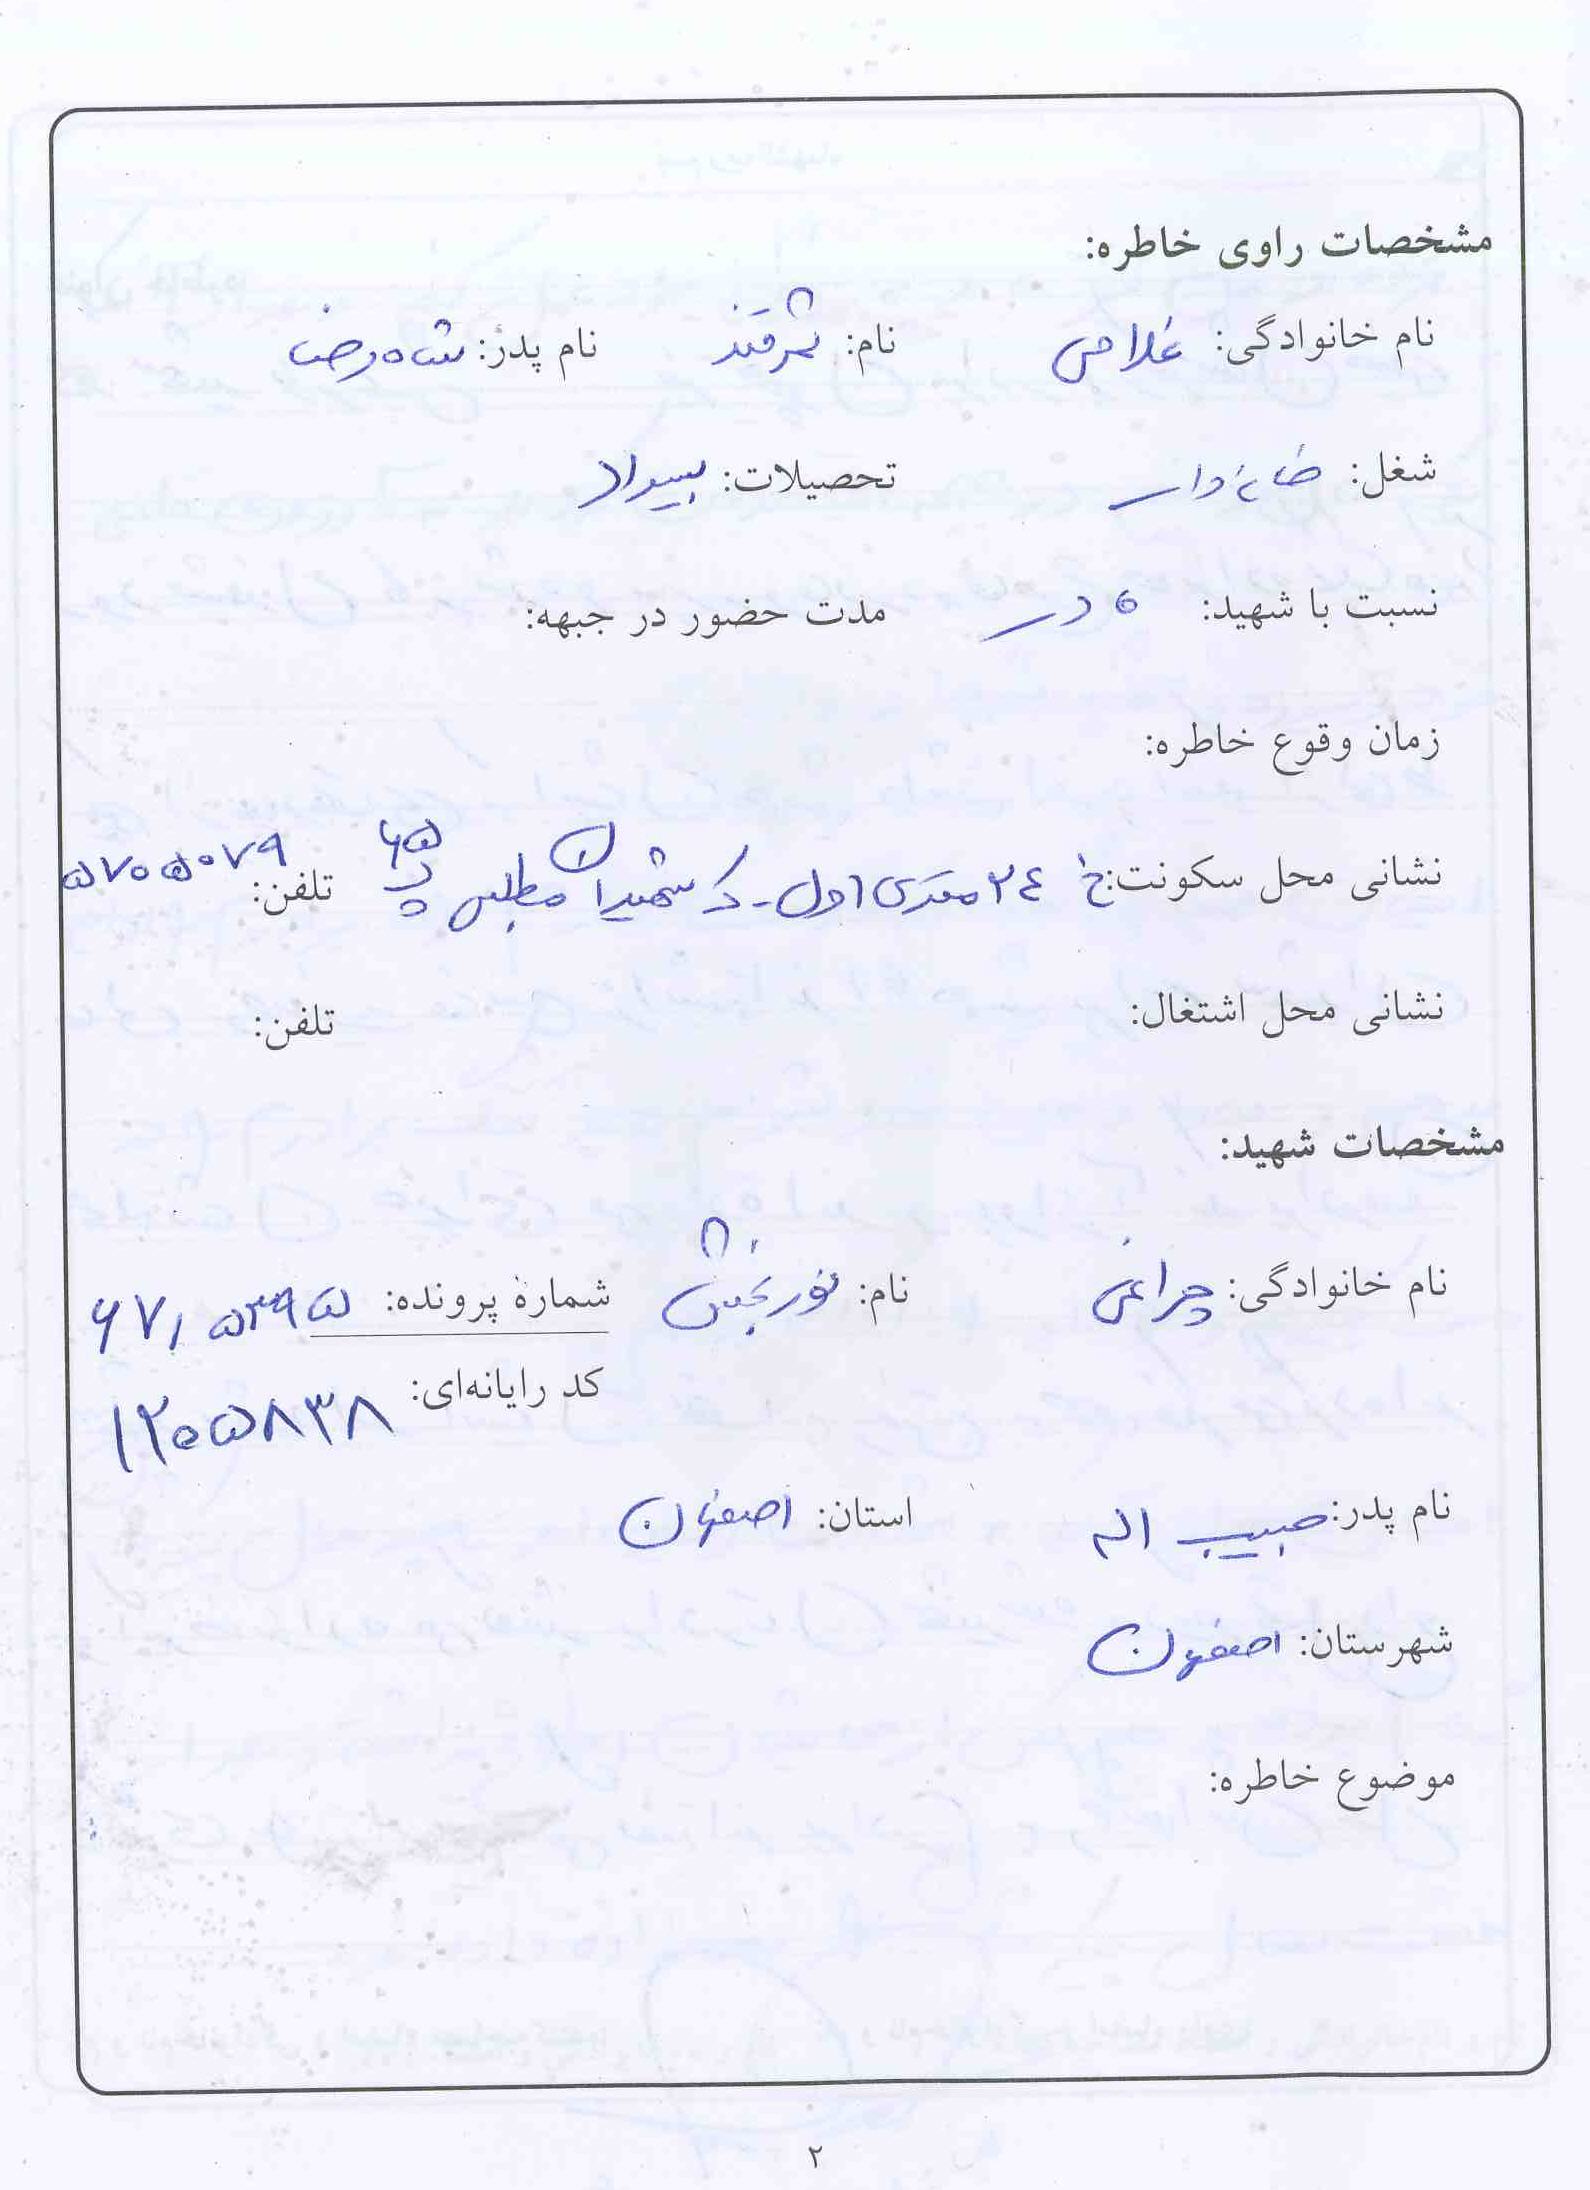 مشخصات راوی خاطره:
نام خانوادگی: غلامی نام: ثمرقند نام پدر: شاه رضا
شغل: خانه دار تحصیلات: بیسواد
نسبت با شهید: مادر مدت حضور در جبهه:
زمان وقوع خاطره:
نشانی محل سکونت: خ ۲۴ متری اول - ک شهیدان مطلبی پ ۶۵ تلفن: ۵۷۰۵۰۷۹
نشانی محل اشتغال: تلفن:
مشخصات شهید:
نام خانوادگی: چراغی نام: نوربخش شمارهٔ پرونده: ۶۷/۵۳۹۵
کد رایانه‌ای: ۱۲۰۵۸۳۸
نام پدر: حبیب اله استان: اصفهان
شهرستان: اصفهان
موضوع خاطره:
۲